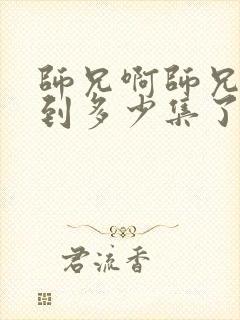 師兄啊師兄
到多少集了
君流香